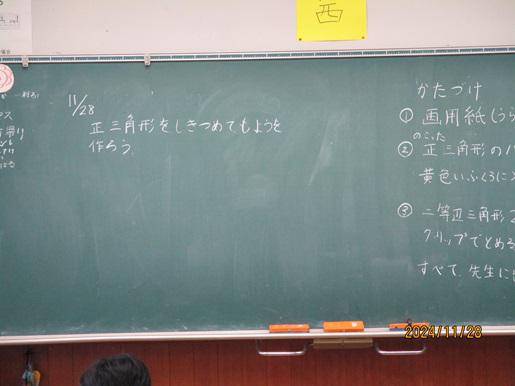 西
11/28
正三角形をしきつめてもようを
作ろう。
かたづけ
① 画用紙(うら
のこった
② 正三角形の
黄色いふくろに
③ 二等辺三角形
クリップでとめる
すべて、先生に
2024/11/28